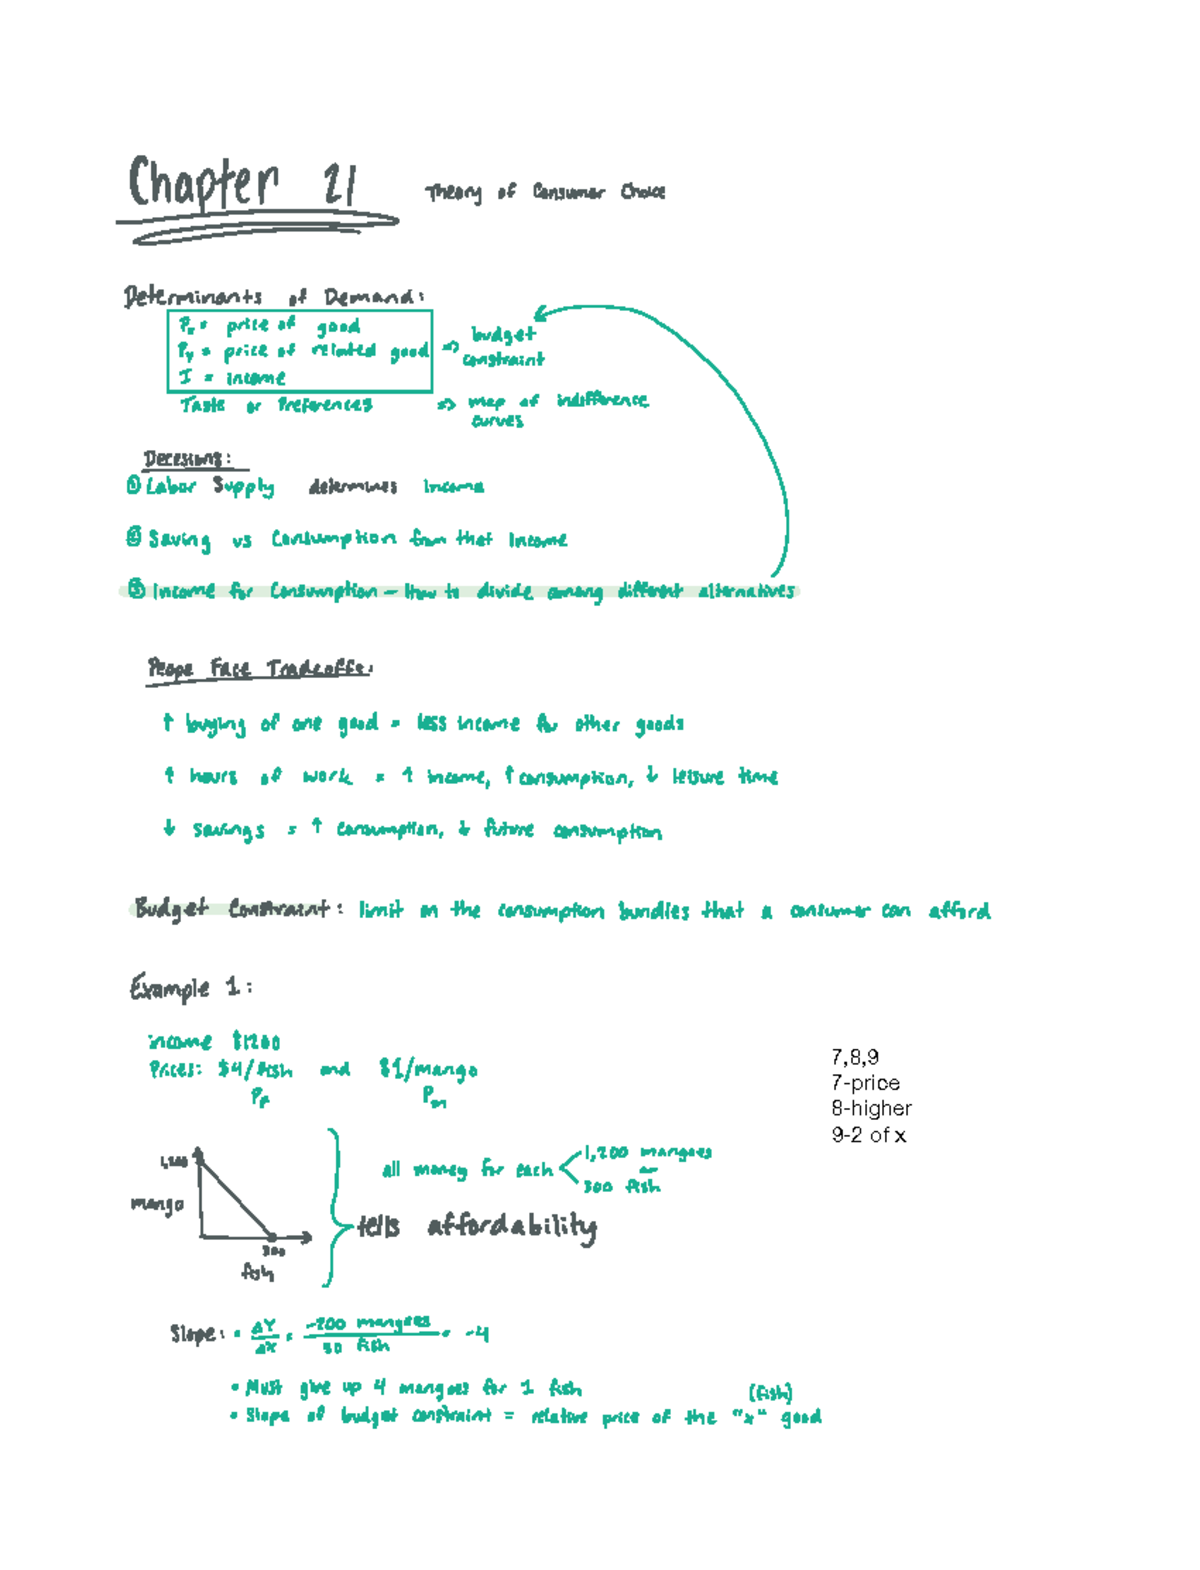 Chapter 21 Theory of Consumer Choice
Determinants of Demand:
Px = price of good
Py = price of related good => budget constraint
I = income
Taste or Preferences => map of indifference curves
Decesions:
① Labor Supply determines income
② Saving vs Consumption from that income
③ Income for Consumption - How to divide among different alternatives
Peope Face Tradeoffs:
↑ buying of one good = less income for other goods
↑ hours of work = ↑ income, ↑ consumption, ↓ leisure time
↓ savings = ↑ consumption, ↓ future consumption
Budget Constraint: limit on the consumption bundles that a consumer can afford
Example 1:
income $1200
Prices: $4/fish and $1/mango
PF Pm
7,8,9
7-price
8-higher
9-2 of x
1,200
mango
300
fish
all money for each < 1,200 mangoes
or
300 fish
tells affordability
Slope: • ΔY/ΔX = -200 mangoes / 50 fish = -4
• Must give up 4 mangoes for 1 fish
(fish)
• Slope of budget constraint = relative price of the "x" good